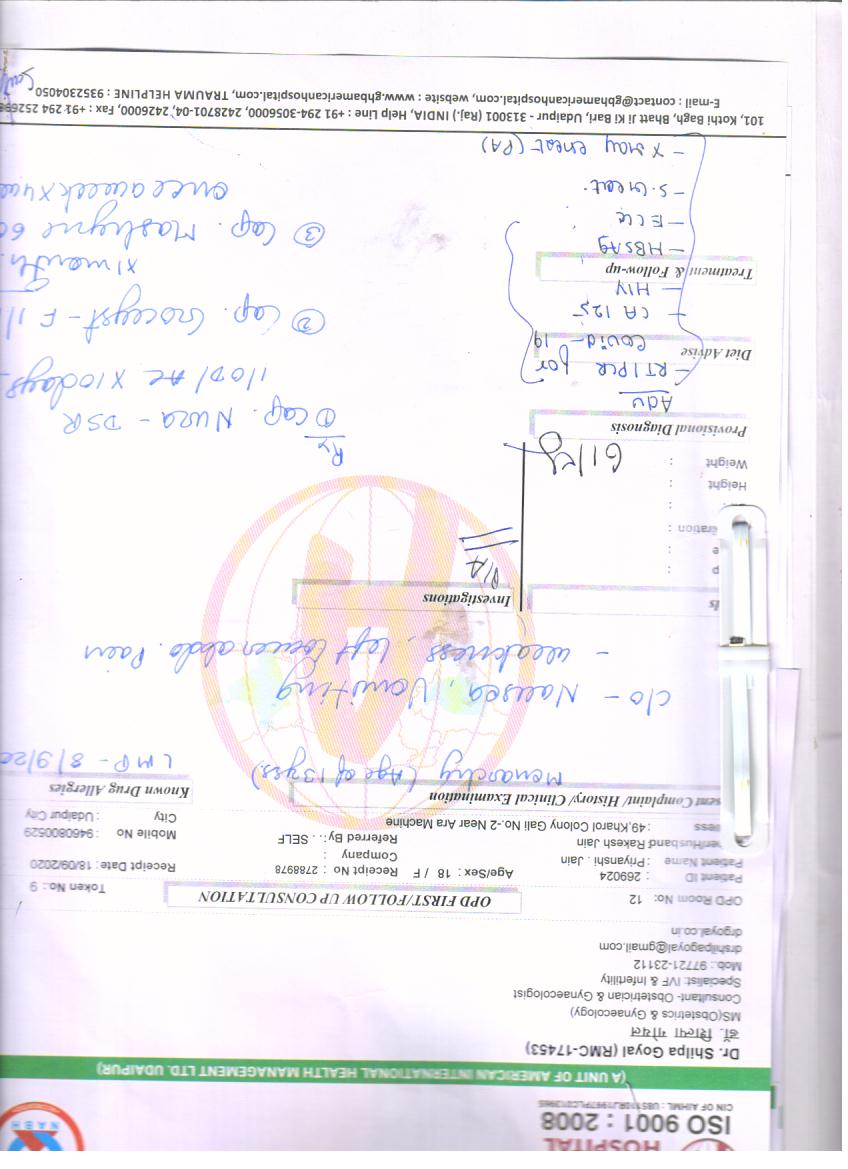 HOSPITAL
ISO 9001 : 2008
NABH
(A UNIT OF AMERICAN INTERNATIONAL HEALTH MANAGEMENT LTD. UDAIPUR)
Dr. Shilpa Goyal (RMC-17453)
डॉ. शिल्पा गोयल
MS(Obstetrics & Gynaecology)
Consultant- Obstetrician & Gynaecologist
Specialist: IVF & Infertility
Mob.: 97721-23112
drshilpagoyal@gmail.com
drgoyal.co.in
OPD Room No: 12
OPD FIRST/FOLLOW UP CONSULTATION
Token No.: 9
Patient ID : 269024
Age/Sex : 18 / F
Receipt No : 2788978
Receipt Date : 18/09/2020
Patient Name : Priyanshi . Jain
Company :
Mobile No : 9460800529
er/Husband Rakesh Jain
Referred By : . . SELF
City : Udaipur City
ess : 49,Kharol Colony Gali No.-2 Near Ara Machine
sent Complaint/ History/ Clinical Examination
Known Drug Allergies
Menarchy (Age of 13 yrs.)
LMP - 8/9/20
c/o - Nausea, Vomiting
- weakness, left lower abdo. Pain
ls
Investigations
p :
P/A
e :
iration :
:
Height :
Weight :
Rx
Provisional Diagnosis
① Cap. Nuza - DSR
Adv
1 OD/AC x10days
- RTPCR for
Diet Advise
Covid-19
② Cap. Grocyst - F 1/1
- CA 125
x1month
- HIV
Treatment & Follow-up
- HBsAg
- ECG
- S. Creat.
once a week x4
- X ray chest (PA)
101, Kothi Bagh, Bhatt Ji Ki Bari, Udaipur - 313001 (Raj.) INDIA, Help Line : +91 294-3056000, 2428701-04, 2426000, Fax : +91 294 252698
E-mail : contact@gbhamericanhospital.com, website : www.gbhamericanhospital.com, TRAUMA HELPLINE : 9352304050